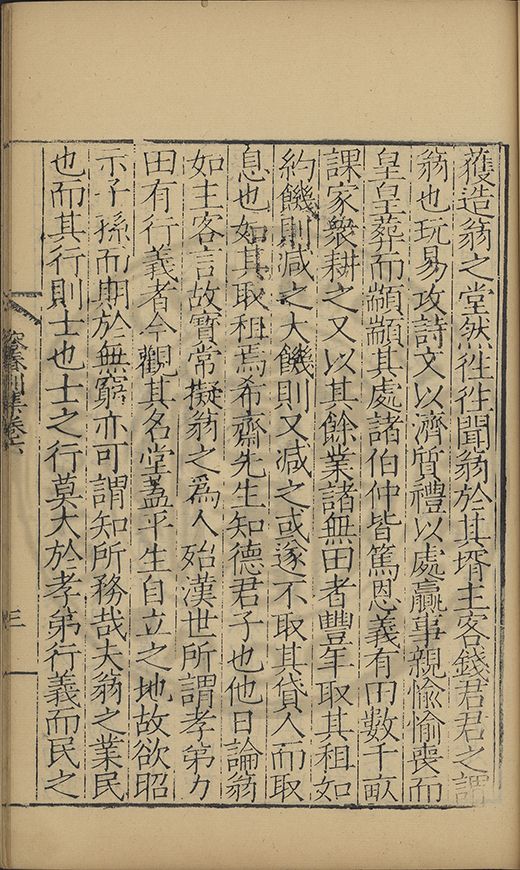 獲造翁之堂然往往聞翁於其壻主客錢君君之謂
翁也玩易攻詩文以濟質禮以處贏事親愉愉喪而
皇皇葬而顓顓其處諸伯仲皆篤恩義有田數千畝
課家衆耕之又以其餘業諸無田者豐年取其租如
約饑則减之大饑則又减之或遂不取其貸人而取
息也如其取租焉希齋先生知德君子也他日論翁
如主客言故寶常擬翁之爲人殆漢世所謂孝弟力
田有行義者今觀其名堂蓋平生自立之地故欲昭
示子孫而期於無窮亦可謂知所務哉夫翁之業民
也而其行則士也士之行莫大於孝弟行義而民之
容春別集卷六
三